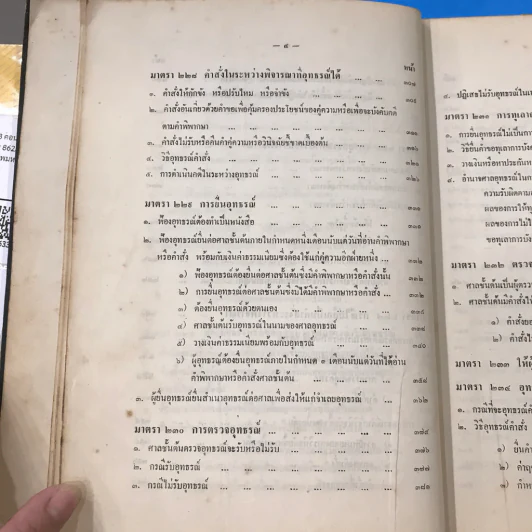 — ๔ —
หน้า
มาตรา ๒๒๘ คำสั่งในระหว่างพิจารณาที่อุทธรณ์ได้ ... ...
๑. คำสั่งให้กักขัง หรือปรับไหม หรือจำขัง
๒. คำสั่งอันเกี่ยวด้วยคำขอเพื่อคุ้มครองประโยชน์ของคู่ความหรือเพื่อจะบังคับคดี
ตามคำพิพากษา ... ... ... ... ...
๓. คำสั่งไม่รับหรือคืนคำคู่ความหรือวินิจฉัยชี้ขาดเบื้องต้น
๔. วิธีอุทธรณ์คำสั่ง ... ... ... ... ...
๕. การดำเนินคดีในระหว่างอุทธรณ์ ... ... ...
มาตรา ๒๒๙ การยื่นอุทธรณ์ ... ... ... ... ...
๑. ฟ้องอุทธรณ์ต้องทำเป็นหนังสือ ... ... ... ...
๒. ฟ้องอุทธรณ์ยื่นต่อศาลชั้นต้นภายในกำหนดหนึ่งเดือนนับแต่วันที่อ่านคำพิพากษา
หรือคำสั่ง พร้อมกับเงินค่าธรรมเนียมซึ่งต้องใช้แก่คู่ความอีกฝ่ายหนึ่ง ...
๑) ฟ้องอุทธรณ์ต้องยื่นต่อศาลชั้นต้นซึ่งมีคำพิพากษาหรือคำสั่งนั้น
๒) การยื่นอุทธรณ์ต่อศาลชั้นต้นซึ่งมิได้มีคำพิพากษาหรือคำสั่ง ...
๓) ต้องยื่นอุทธรณ์ด้วยตนเอง ... ... ...
๔) ศาลชั้นต้นรับอุทธรณ์ในนามของศาลอุทธรณ์ ...
๕) วางเงินค่าธรรมเนียมพร้อมกับอุทธรณ์ ... ...
๖) ผู้อุทธรณ์ต้องยื่นอุทธรณ์ภายในกำหนด ๑ เดือนนับแต่วันที่ได้อ่าน
คำพิพากษาหรือคำสั่งศาลชั้นต้น ... ... ...
๓. ผู้ยื่นอุทธรณ์ยื่นสำเนาอุทธรณ์ต่อศาลเพื่อส่งให้แก่จำเลยอุทธรณ์ ... ๓๖๒
มาตรา ๒๓๐ การตรวจอุทธรณ์ ... ... ... ... ... ๓๗๕
๑. ศาลชั้นต้นตรวจอุทธรณ์จะรับหรือไม่รับ ... ... ...
๒. กรณีรับอุทธรณ์ ... ... ... ... ... ๓๗๗
๓. กรณีไม่รับอุทธรณ์ ... ... ... ... ... ๓๘๑
๔. ปฏิเสธไม่รับอุทธรณ์ใน
มาตรา ๒๓๑ การทุเลา
๑. การยื่นอุทธรณ์ไม่เป็นการ
๒. วิธียื่นคำขอทุเลาการบัง
๓. วางเงินหรือหาประกัน
๔. อำนาจศาลอุทธรณ์ใน
ความรับผิดตาม
ผลของการให้ทุ
ผลของการไม่
ขอทุเลาการบัง
มาตรา ๒๓๒ ตรวจ
๑. ศาลชั้นต้นเป็นผู้ตรวจ
๒. ศาลชั้นต้นมีคำสั่ง
๑) คำสั่งย
๒) คำสั่งไ
มาตรา ๒๓๓ ให้ผู้
มาตรา ๒๓๔ อุท
๑. กรณีที่จะอุทธรณ์คำ
๒. วิธีอุทธรณ์คำสั่ง
๑) ยื่นคำ